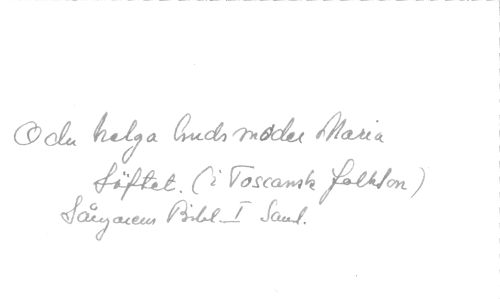 O du helga Guds moder Maria
Löftet. (i Toscansk folkton)
Sångarens Bibl. I Saml.